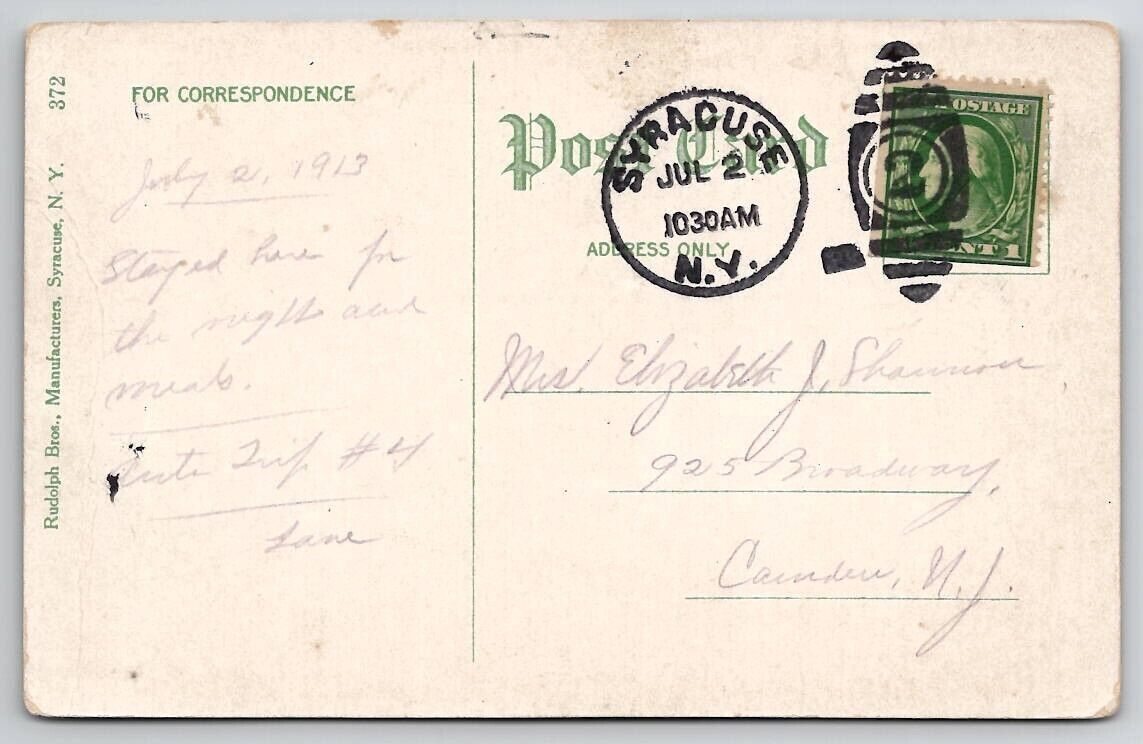 372
Rudolph Bros., Manufacturers, Syracuse, N. Y.
FOR CORRESPONDENCE
July 2, 1913
Stayed here for
the night and
meals.
Auto Trip #4
Lane
Post Card
ADDRESS ONLY
SYRACUSE
JUL 2
1030AM
N.Y.
POSTAGE
2
CENT 1
Mrs. Elizabeth J. Shannon
925 Broadway,
Camden, N. J.